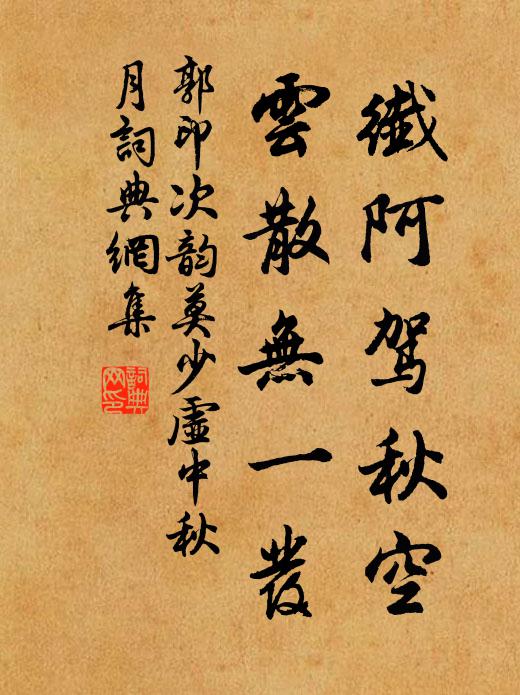 纖阿駕秋空
雲散無一發
郭印次韵莫少虛中秋
月詞典網集
詞典网印